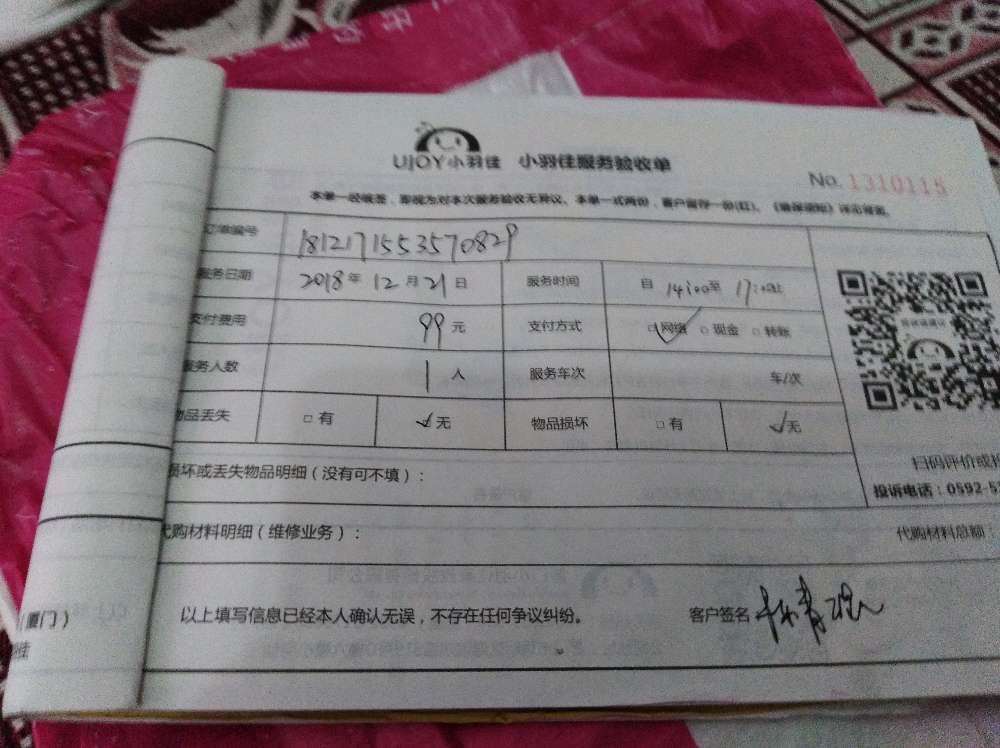 UJOY小羽佳 小羽佳服务验收单
No. 1310115
本单一经签签，即视为对本次服务验收无异议。本单一式两份，客户留存一份(红)。
订单编号 1812171553570829
服务日期 2018年12月21日 服务时间 自 14:00至 17:00止
支付费用 99元 支付方式 □网络 □现金 □转账
服务人数 1人 服务车次 车/次
物品丢失 □有 无 物品损坏 □有 无
损坏或丢失物品明细（没有可不填）：
扫码评价或
投诉电话：0592-5
代购材料明细（维修业务）：
代购材料总额：
（厦门）
以上填写信息已经本人确认无误，不存在任何争议纠纷。
客户签名
佳